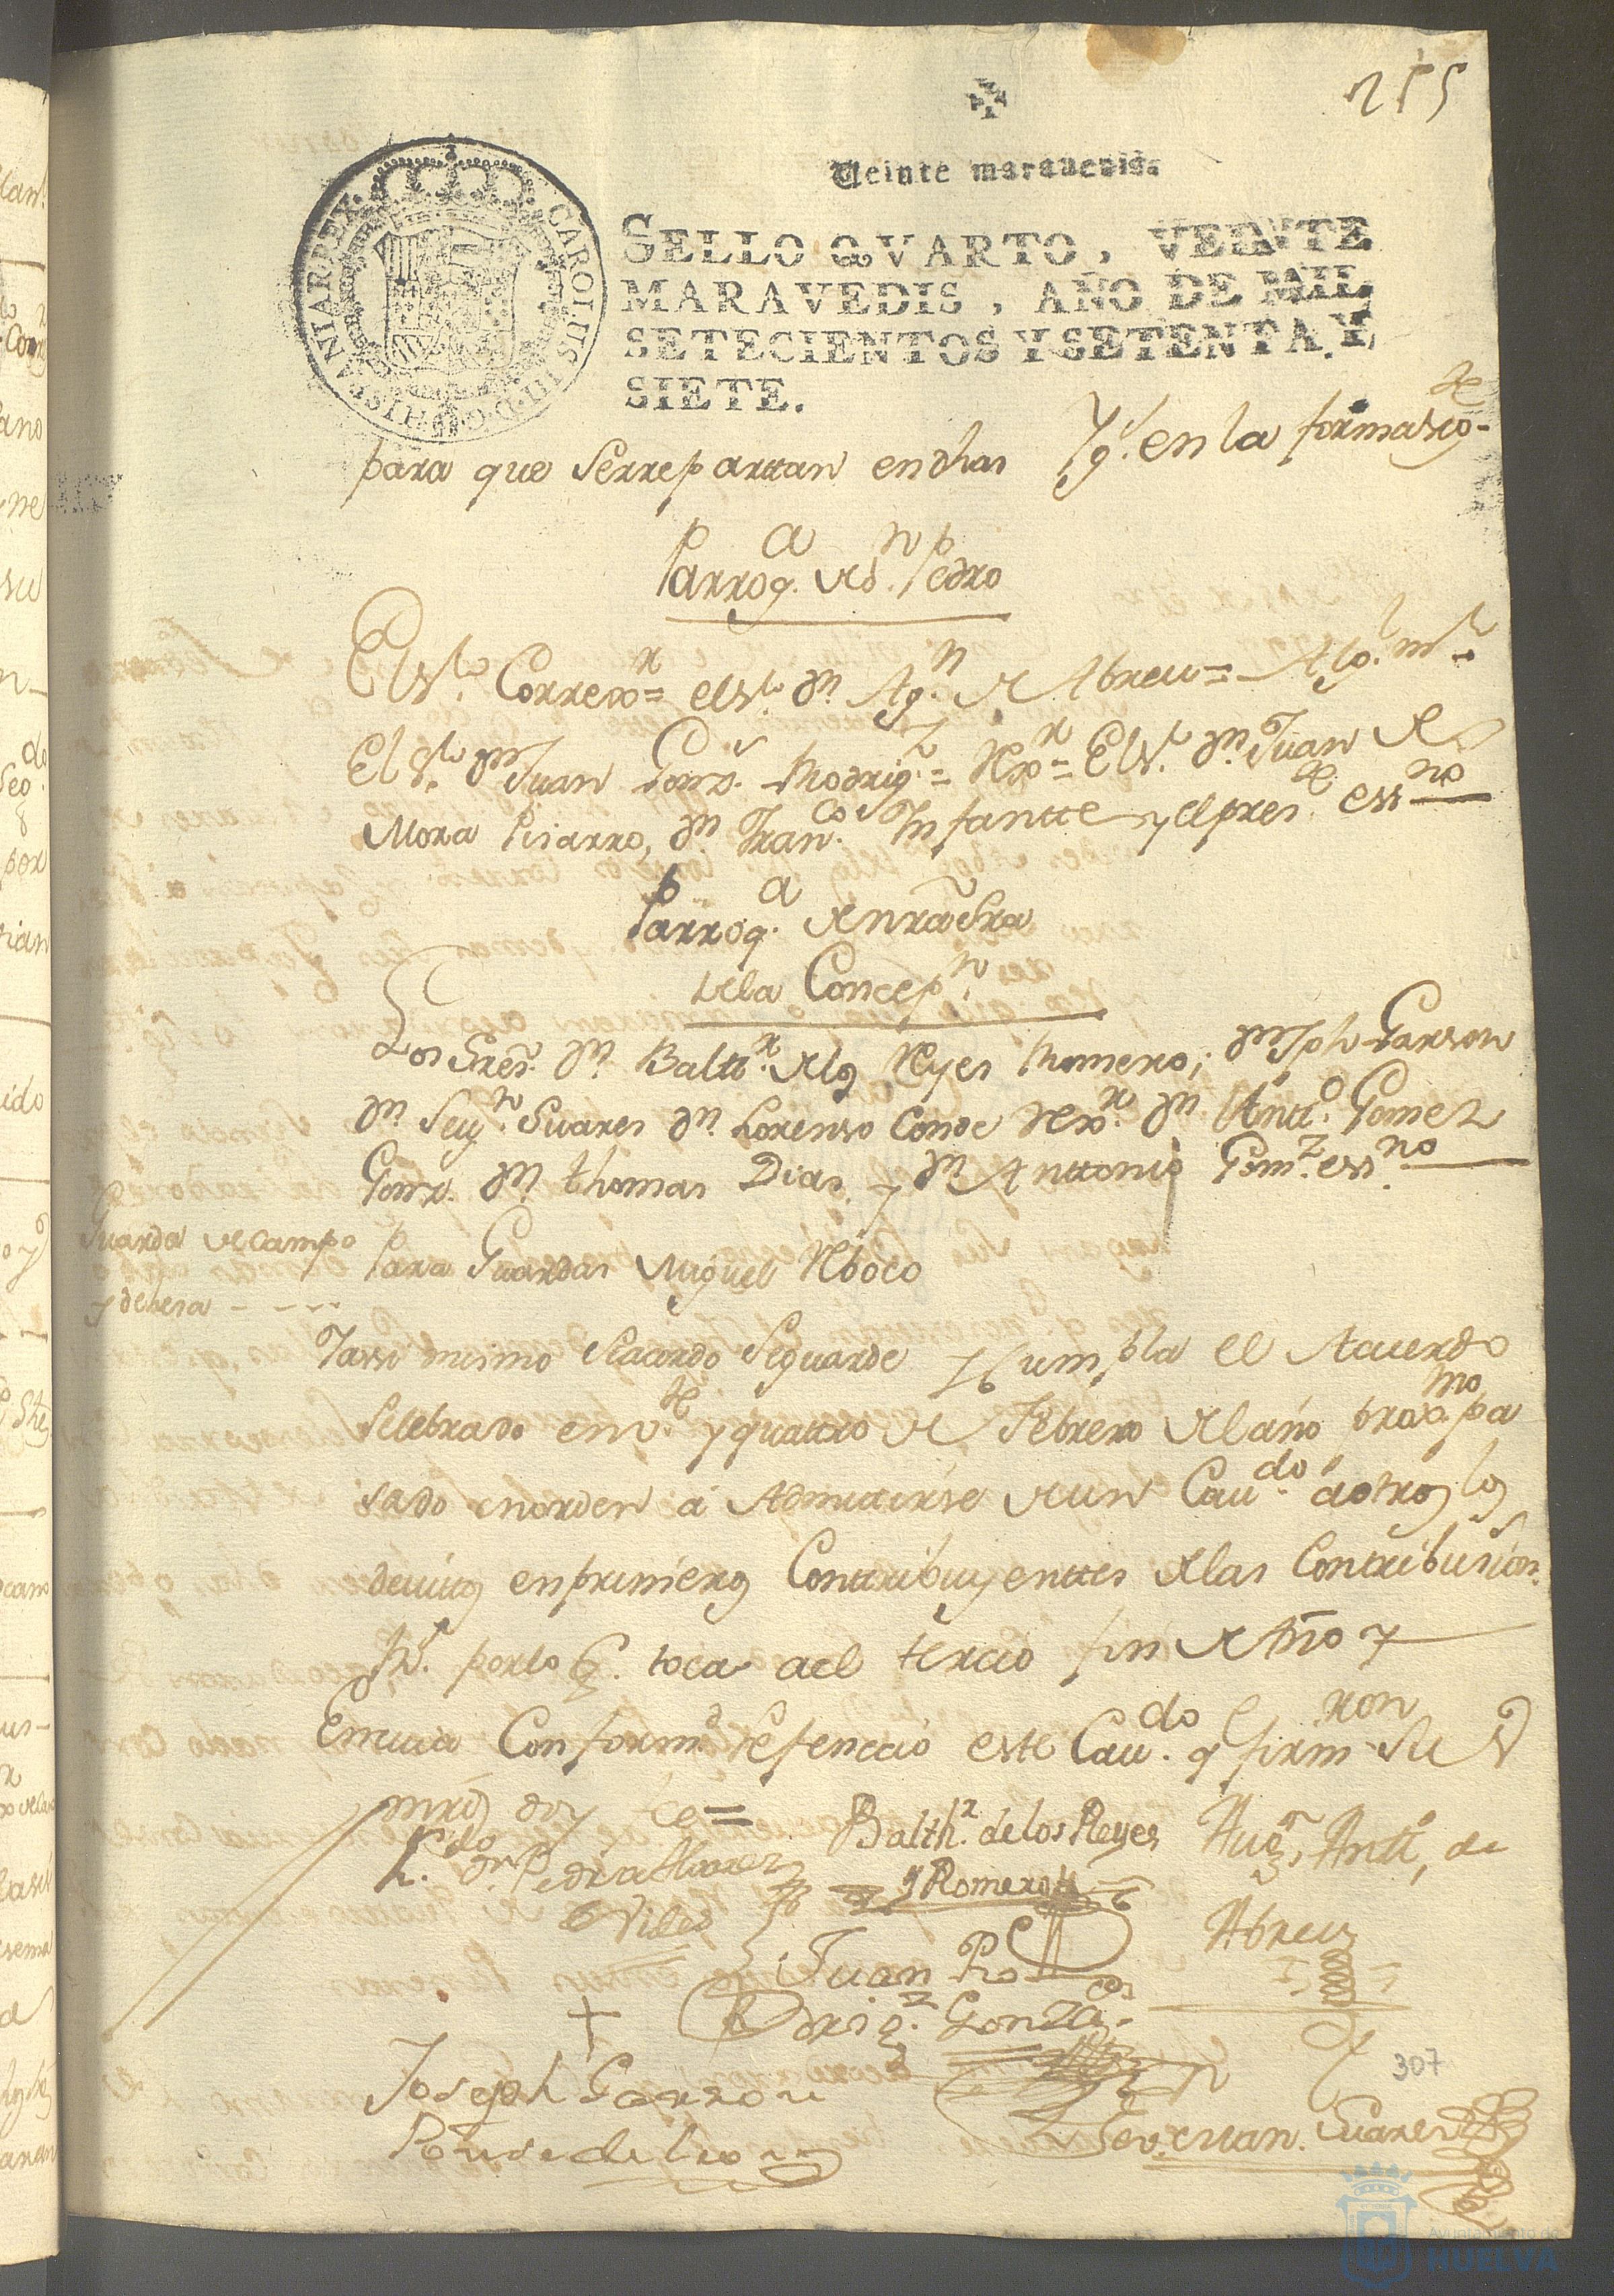 255
Veinte maravedis.
CAROLUS III D G HISPANIAR REX
SELLO QVARTO, VEINTE
MARAVEDIS, AÑO DE MIL
SETECIENTOS Y SETENTA Y
SIETE.
para que serrepartan en dhas Yg.s en la forma sig.te
Parroq.a de S.n Pedro
El S.or Correxo.r = el S.or D.n Ag.n de Abreu = Alg. m.or
El S.or D.n Juan Gonz.s Rodrig.z = Rexo.r = El S.or D.n Juan de
Mora Pisarro, D.n Fran.co Infantte y el pres.te ess.no
Parroq.a de nrã Sra
de la Concep.n
Los Sres. D.n Baltt.r de los Reyes Romero; D.n Jph Garson
D.n Seuy.no Suares D.n Lorenso Conde Rexo.r D.n Antt.o Gomez
Gonz. D.n thomas Dias y D.n Anttonio Gom.z ess.no
Guarda de campo
y dehesa - - - -
Para Guardas Miguel Reboco
Yassi mismo Seacordo Seguarde y Cumpla el Acuerdo
Selebrado en v.te y quattro de Febrero del año prox.mo pa
sado en orden a Admitirse de un Cau.do á otros los
devitos en primeros Conttribuyenttes de las Contribusion.
R.s por lo q. toca a el tercio fin de Año y
En cuia Conform.d Sefenecio este Cau.do q firmaron Su S
mrds doy fee =
L.do D.n Pedro Alvarez
Baltth.r de los Reyes
y Romero
Aug.n Antt.o de
Abreu
Juan Ro
drig.z Gonza.s
Joseph Garzon
Ponse de Leon
Seveman. Suares
307
Ayuntamiento de
HUELVA